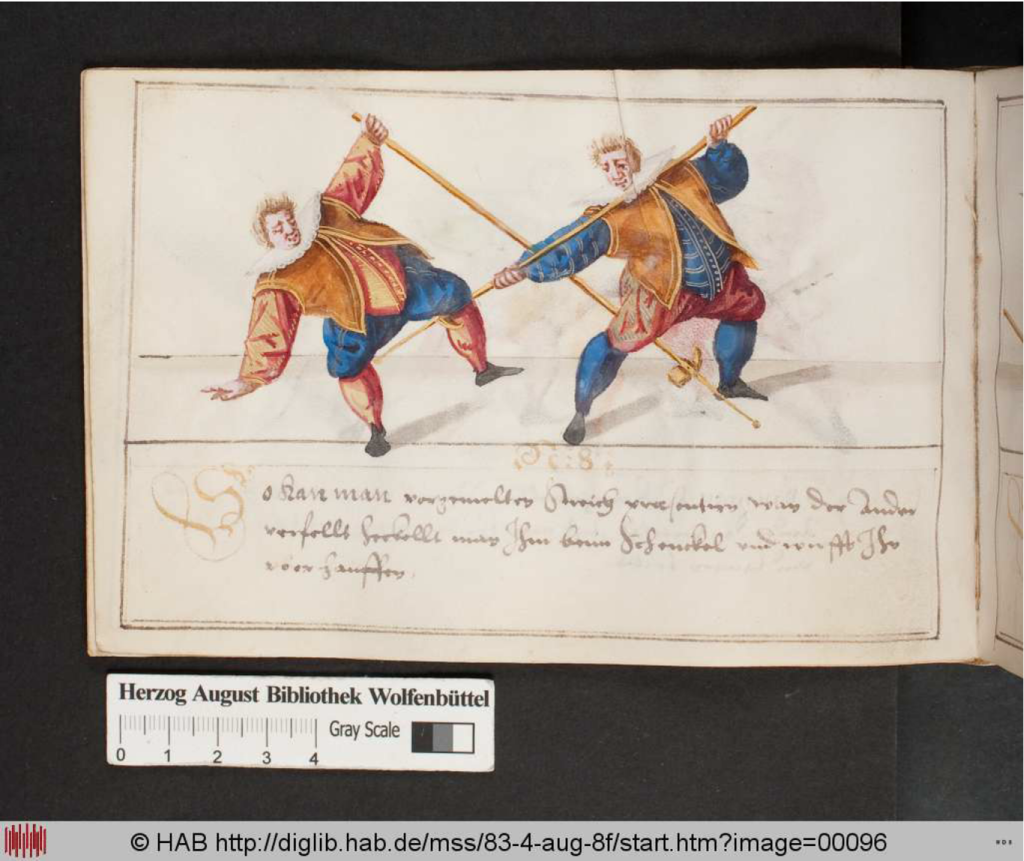 No: 8:
So Kan man vorgemelten Streich presentirn, wan der Ander
verfellt man Ihm beim Schenckel und würfft Ihn
vber hauffen.
Herzog August Bibliothek Wolfenbüttel
0 1 2 3 4 Gray Scale
© HAB http://diglib.hab.de/mss/83-4-aug-8f/start.htm?image=00096